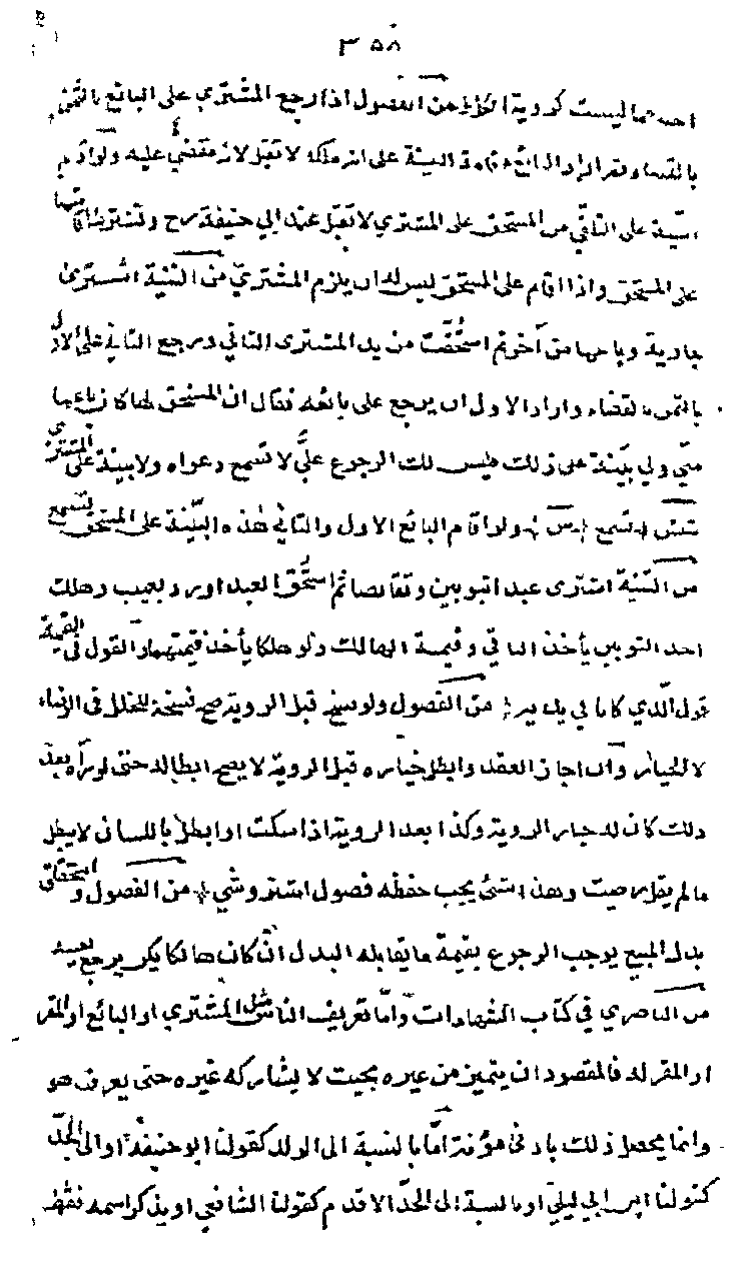 ٣٥٨
احدهما ليست كروية الكل من الفصول اذا رجع المشتري على البائع بالثمن
بالقضاء واراد البائع اقامة البينة على انه ملكه لا تقبل لانه مقضي عليه ولو اقام
البينة على التلقي من المستحق على المشتري لا تقبل عند ابي حنيفة رح وتشترط اقامتها
على المستحق واذا اقام على المستحق ليس له ان يلزم المشتري من القنية اشترى
جارية وباعها من آخر ثم استحقت من يد المشتري الثاني ورجع الثاني على الاول
بالثمن بالقضاء واراد الاول ان يرجع على بائعه فقال ان المستحق لها كان باعها
مني ولي بينة على ذلك فليس لك الرجوع علي لا تسمع دعواه ولا بينة على المشتري
تسمع ولو اقام البائع الاول والثاني هذه البينة على المستحق تسمع
من القنية اشترى عبدا بثوبين وتقابضا ثم استحق العبد او رد بعيب وهلك
احد الثوبين يأخذ الباقي وقيمة الهالك ولو هلكا يأخذ قيمتهما والقول في القيمة
قول الذي كانا في يديه من الفصول ولو فسخ قبل الروية صح فسخه للخلل في الرضاء
لا للخيار وان اجاز العقد وابطل خياره قبل الروية لا يصح ابطاله حتى لو رآه بعد
ذلك كان له خيار الروية وكذا بعد الروية اذا سكت او ابطل باللسان لا يبطل
ما لم يقل رضيت وهذا شئ يجب حفظه فصول استروشني من الفصول واستحقاق
بدل المبيع يوجب الرجوع بقيمة ما يقابله البدل ان كان هالكا يرجع بعينه
من الناصري في كتاب الشهادات واما تعريف الناس مثل المشتري او البائع او المقر
او المقر له فالمقصود ان يتميز من غيره بحيث لا يشاركه غيره حتى يعرف هو
وانما يحصل ذلك بادنى مؤنة اما بالنسبة الى الولد كقولنا ابو حنيفة او الى الجد
كقولنا ابن ابي ليلى او بالنسبة الى الجد الاقدم كقولنا الشافعي او يذكر اسمه فقط